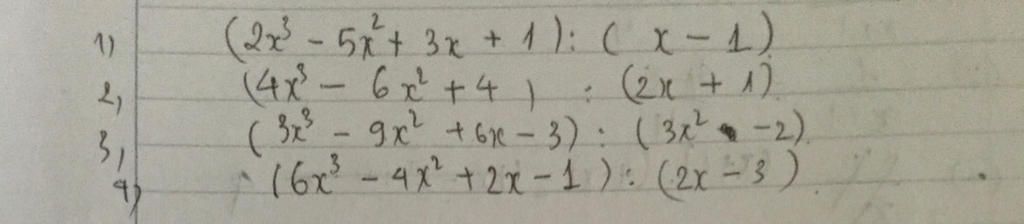 1) (2x³ - 5x² + 3x + 1) : ( x - 1)
2, (4x³ - 6x² + 4 ) : (2x + 1)
3, ( 3x³ - 9x² + 6x - 3) : ( 3x² - 2)
4) (6x³ - 4x² + 2x - 1 ) : (2x - 3 )